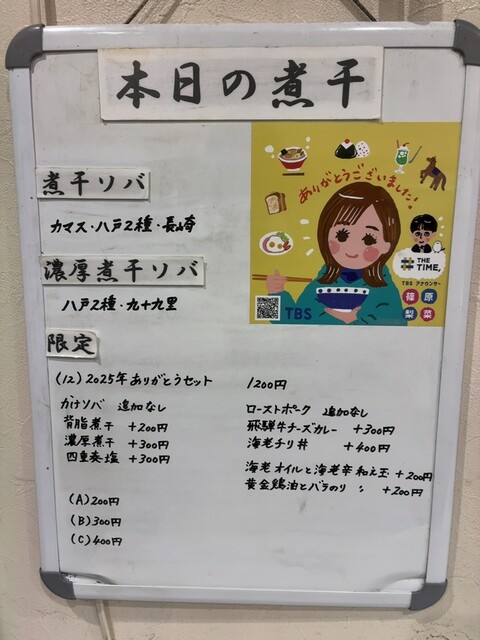 本日の煮干
煮干ソバ
カマス・八戸2種・長崎
濃厚煮干ソバ
八戸2種・九十九里
ありがとうございました!
THE TIME,
TBS アナウンサー
篠原
梨菜
TBS
限定
(12) 2025年ありがとうセット 1200円
かけソバ 追加なし
背脂煮干 +200円
濃厚煮干 +300円
四重奏塩 +300円
ローストポーク 追加なし
飛騨牛チーズカレー +300円
海老チリ丼 +400円
海老オイルと海老辛和え玉 +200円
黄金鶏油とバラのり 〃 +200円
(A) 200円
(B) 300円
(C) 400円